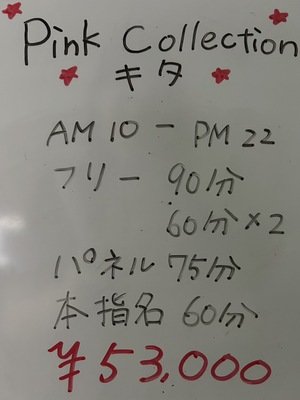 Pink Collection
キタ
AM 10 - PM 22
フリー 90分
60分×2
パネル 75分
本指名 60分
¥53,000